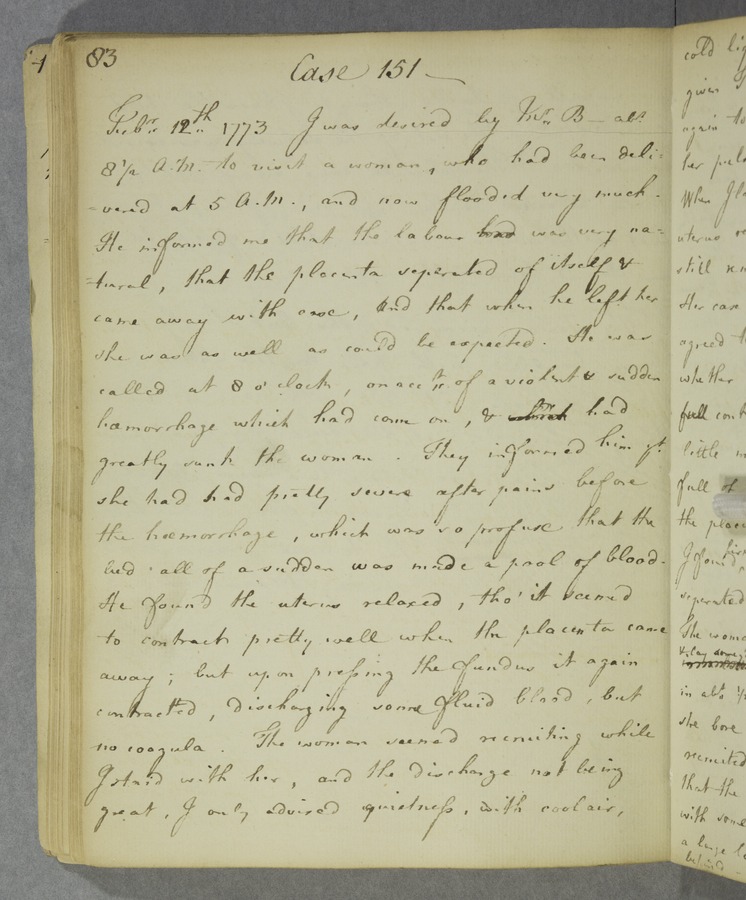 83
Case 151
Febr. 12th 1773 I was desired by Mr. B— abt.
8 1/2 A.M. to visit a woman, who had been deli=
=vered at 5 A.M., and now flooded very much.
He informed me that the labour had was very na=
=tural, that the placenta seperated of itself &
came away with ease, and that when he left her
she was as well as could be expected. He was
called at 8 o'clock, on acct. of a violent & sudden
hæmorrhage which had come on, & which had
greatly sunk the woman. They informed him yt.
she had had pretty severe after pains before
the hæmorrhage, which was so profuse that the
bed all of a sudden was made a pool of blood.
He found the uterus relaxed, tho' it seemed
to contract pretty well when the placenta came
away; but upon pressing the fundus it again
contracted, discharging some fluid blood, but
no coagula. The woman seemed recruiting while
I staid with her, and the discharge not being
great, I only advised quietness, with cool air,
cold
given
again to
her pulse
When I
uterus
still
Her case
agreed
whether
full
little
full of
the
I found
seperated
The
in abt.
she bore
recruited
that the
with some
a large
behind